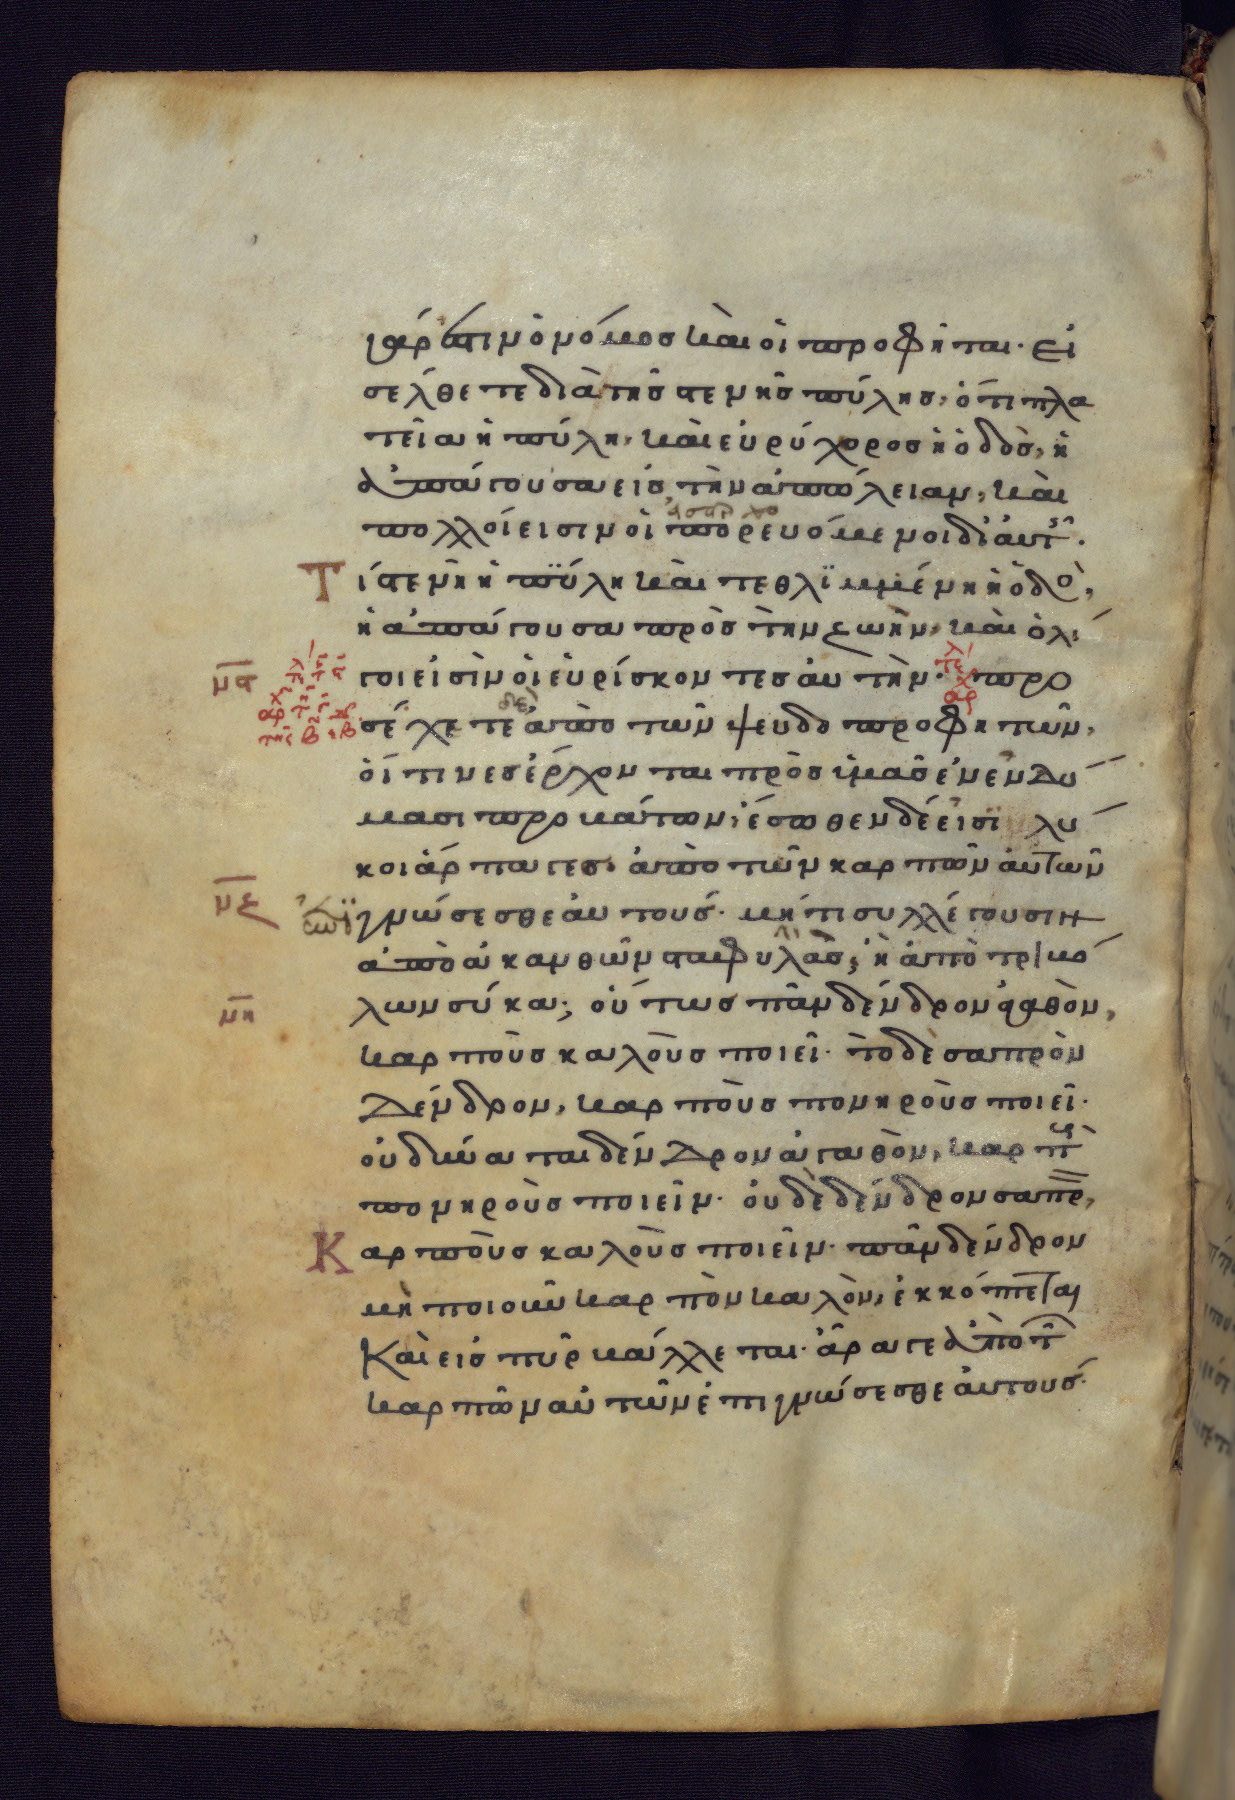 γάρ ἐστιν ὁ νόμος καὶ οἱ προφῆται· Εἰ
σέλθετε διὰ τῆς στενῆς πύλης, ὅτι πλα
τεῖα ἡ πύλη, καὶ εὐρύχορος ἡ ὁδὸς, ἡ
ἀπάγουσα εἰς τὴν ἀπώλειαν, καὶ
πολλοί εἰσιν οἱ πορευόμενοι δι αὐτ͂.
Τί στενὴ ἡ πύλη καὶ τεθλϊμμένη ἡ ὁδὸ,
ἡ ἀπάγουσα πρὸς τὴν ζωὴν, καὶ ὀλί
μϛ γοι εἰσὶν οἱ εὑρίσκοντες αὐτὴν· προ
σέχετε δὲ ἀπὸ τῶν ψευδοπροφητῶν,
οἵτινες ἔρχονται πρὸς ὑμᾶς ἐν ἐνδύ
μασι προβάτων, ἔσωθεν δέ εἰσϊ λύ
κοι ἅρπαγες. ἀπὸ τῶν καρπῶν αὐτῶν
μζ γνώσεσθε αὐτούς· μήτι συλλέγουσιν
ἀπὸ ἀκανθῶν σταφυλάς; ἢ ἀπὸ τριβό
μη λων σύκα; οὕτως πᾶν δένδρον ἀγαθὸν,
καρποὺς καλοὺς ποιεῖ· τὸ δὲ σαπρὸν
Δένδρον, καρποὺς πονηροὺς ποιεῖ·
οὐ δύναται δένδρον ἀγαθὸν, καρπ
πονηροὺς ποιεῖν· οὐδὲ δένδρον σαπρ,
Καρποὺς καλοὺς ποιεῖν· πᾶν δένδρον
μὴ ποιοῦν καρπὸν καλὸν, ἐκκόπτεται
Καὶ εἰς πῦρ βάλλεται· ἄρα γε ἀπὸ τ
καρπῶν αὐτῶν ἐπιγνώσεσθε αὐτούς·